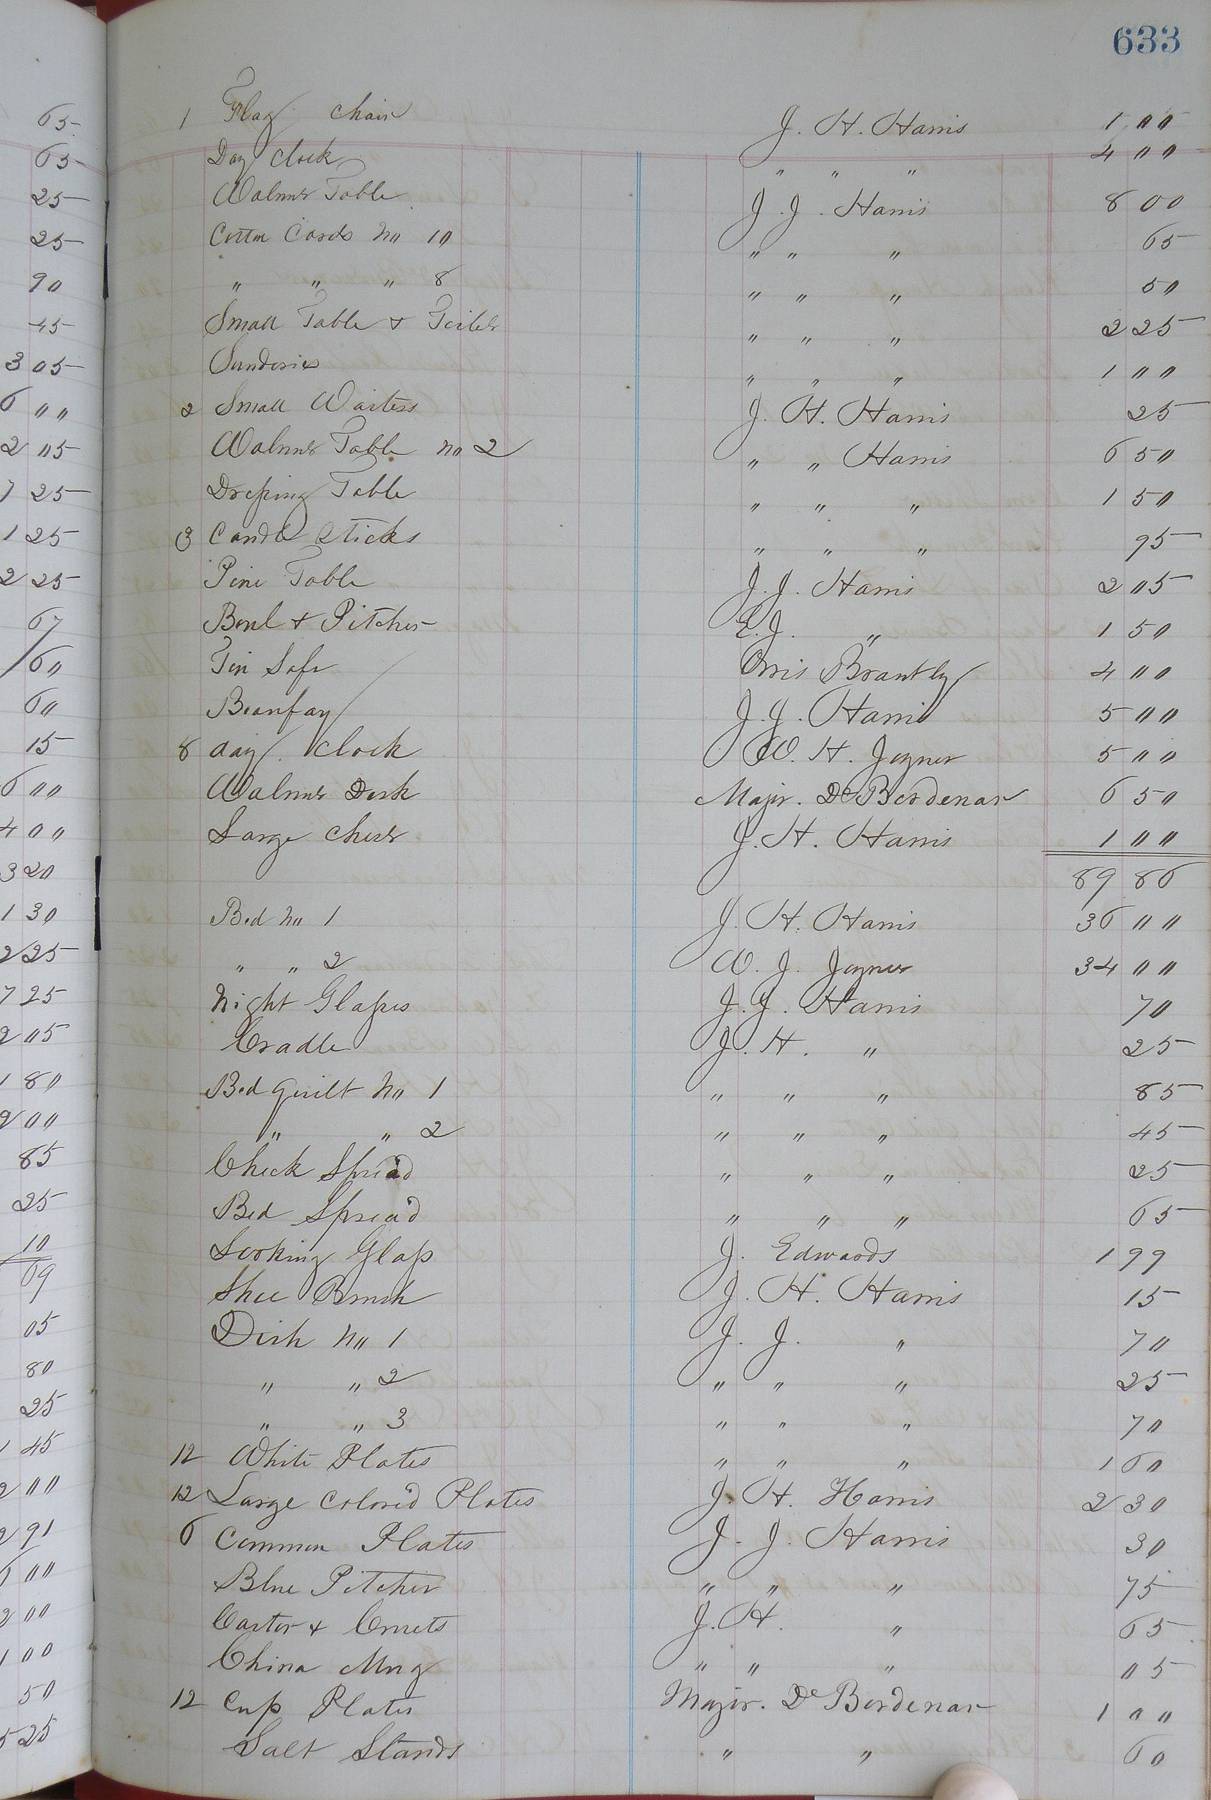 633
65
65
25
25
90
45
3 05
6 00
2 05
7 25
1 25
2 25
67
60
60
15
6 00
4 00
3 20
1 30
2 25
7 25
2 05
1 80
2 00
85
25
10
69
05
80
25
1 45
2 00
2 91
6 00
2 00
1 00
50
5 25
1 Flag chair J. H. Harris 1 00
Day clock " " " 4 00
Walnut Table J. J. Harris 8 00
Cotton Cards No 10 " " " 65
" " " 8 " " " 50
Small Table & Toilet " " " 2 25
Sunderies " " " 1 00
2 Small Waiters J. H. Harris 25
Walnut Table no 2 " " Harris 6 50
Dressing Table " " " 1 50
3 Candle Sticks " " " 95
Pine Table J. J. Harris 2 05
Bowl & Pitcher E. J. " 1 50
Tin Safe Orris Brantly 4 00
Beaufay J. J. Harris 5 00
8 day clock W. H. Joyner 5 00
Walnut Desk Major. De Berdenar 6 50
Large chest J. H. Harris 1 00
89 86
Bed No 1 J. H. Harris 36 00
" " 2 W. J. Joyner 34 00
Night Glasses J. J. Harris 70
Cradle J. H. " 25
Bed Quilt No 1 " " " 85
" " 2 " " " 45
Check Spread " " " 25
Bed Spread " " " 65
Looking Glass J. Edwards 1 99
Shoe Brush J. H. Harris 15
Dish No 1 J. J. " 70
" " 2 " " " 25
" " 3 " " " 70
12 White Plates " " " 1 60
12 Large colored Plates J. H. Harris 2 30
6 common Plates J. J. Harris 30
Blue Pitcher " " " 75
Castor & Cruets J. H. " 65
China Mug " " " 05
12 Cup Plates Major. De Berdenar 1 00
Salt Stands " " 60